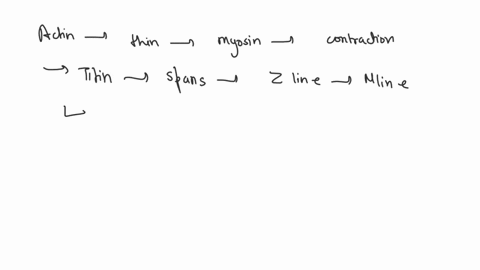 Actin → thin → myosin → contraction
→ Titin → spans → Z line → M line